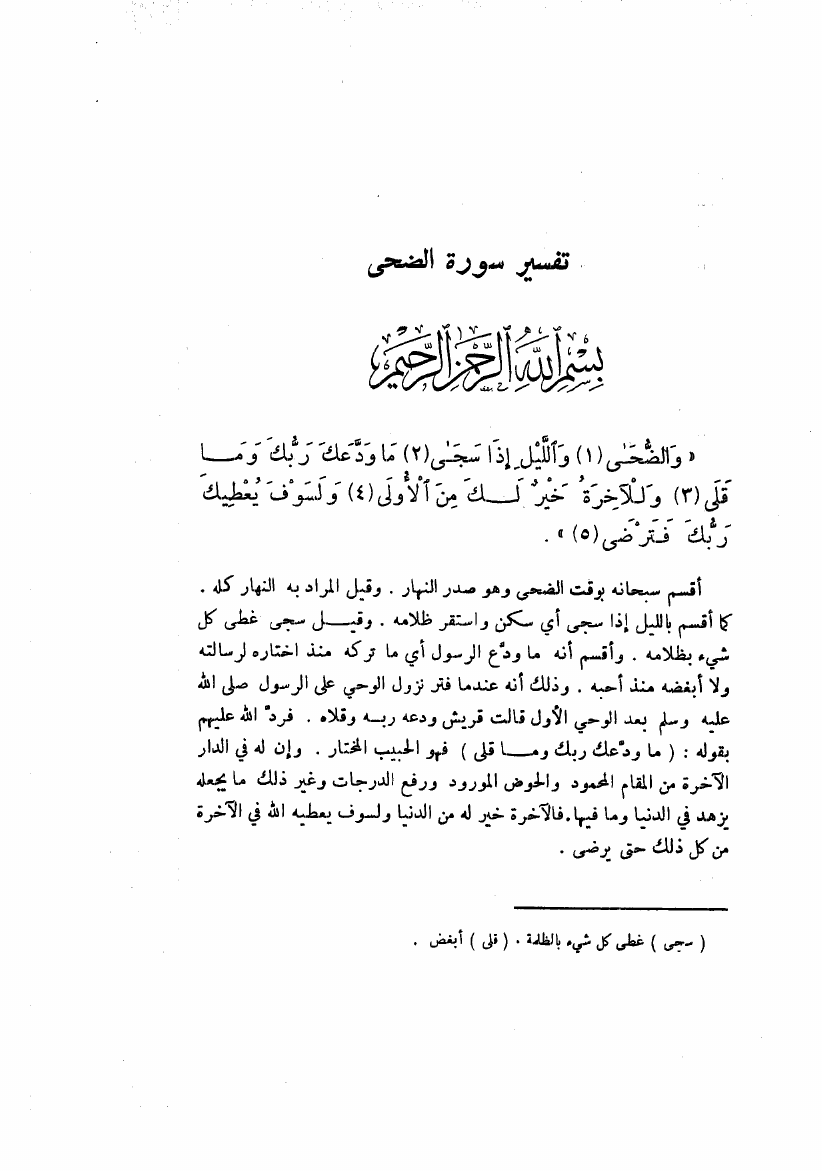 تفسير سورة الضحى
بِسْمِ ٱللَّهِ ٱلرَّحْمَٰنِ ٱلرَّحِيمِ
« وَٱلضُّحَىٰ (١) وَٱلَّيْلِ إِذَا سَجَىٰ (٢) مَا وَدَّعَكَ رَبُّكَ وَمَــا
قَلَىٰ (٣) وَلَلْآخِرَةُ خَيْرٌ لَــكَ مِنَ ٱلْأُولَىٰ (٤) وَلَسَوْفَ يُعْطِيكَ
رَبُّكَ فَتَرْضَى (٥) » .
أقسم سبحانه بوقت الضحى وهو صدر النهار . وقيل المراد به النهار كله .
كما أقسم بالليل إذا سجى أي سكن واستقر ظلامه . وقيــل سجى غطى كل
شيء بظلامه . وأقسم أنه ما ودّع الرسول أي ما تركه منذ اختاره لرسالته
ولا أبغضه منذ أحبه . وذلك أنه عندما فتر نزول الوحي على الرسول صلى الله
عليه وسلم بعد الوحي الأول قالت قريش ودعه ربــه وقلاه . فردّ الله عليهم
بقوله : ( ما ودّعك ربك ومــا قلى ) فهو الحبيب المختار . وإن له في الدار
الآخرة من المقام المحمود والحوض المورود ورفع الدرجات وغير ذلك ما يجعله
يزهد في الدنيا وما فيها.فالآخرة خير له من الدنيا ولسوف يعطيه الله في الآخرة
من كل ذلك حتى يرضى .
( سجى ) غطى كل شيء بالظلمة . ( قلى ) أبغض .